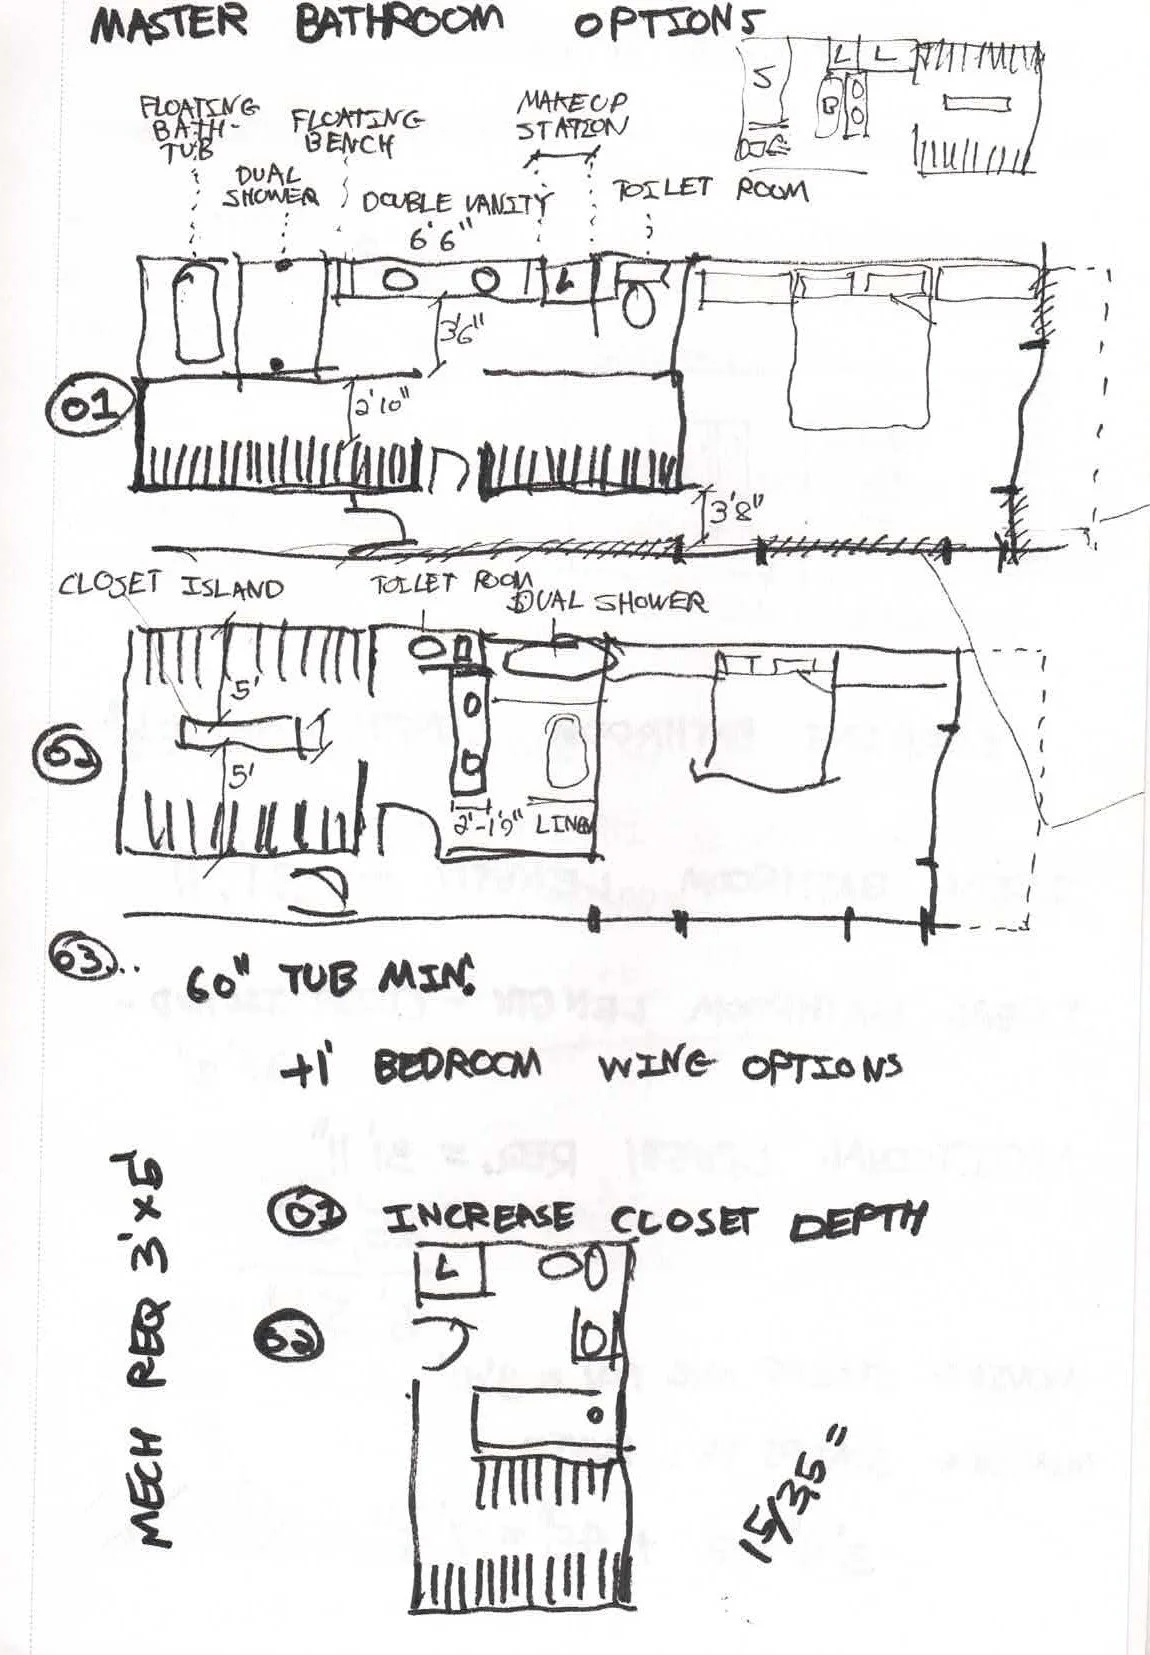 MASTER BATHROOM OPTIONS
S
L L
B
FLOATING
BATH-
TUB
FLOATING
BENCH
MAKEUP
STATION
DUAL
SHOWER
DOUBLE VANITY
TOILET ROOM
6'6"
L
3'6"
01
2'10"
3'8"
CLOSET ISLAND
TOILET ROOM
DUAL SHOWER
5'
02
5'
2'-1'9"
LINEN
03...
60" TUB MIN.
+1' BEDROOM WING OPTIONS
MECH REQ 3'x5'
01 INCREASE CLOSET DEPTH
L
02